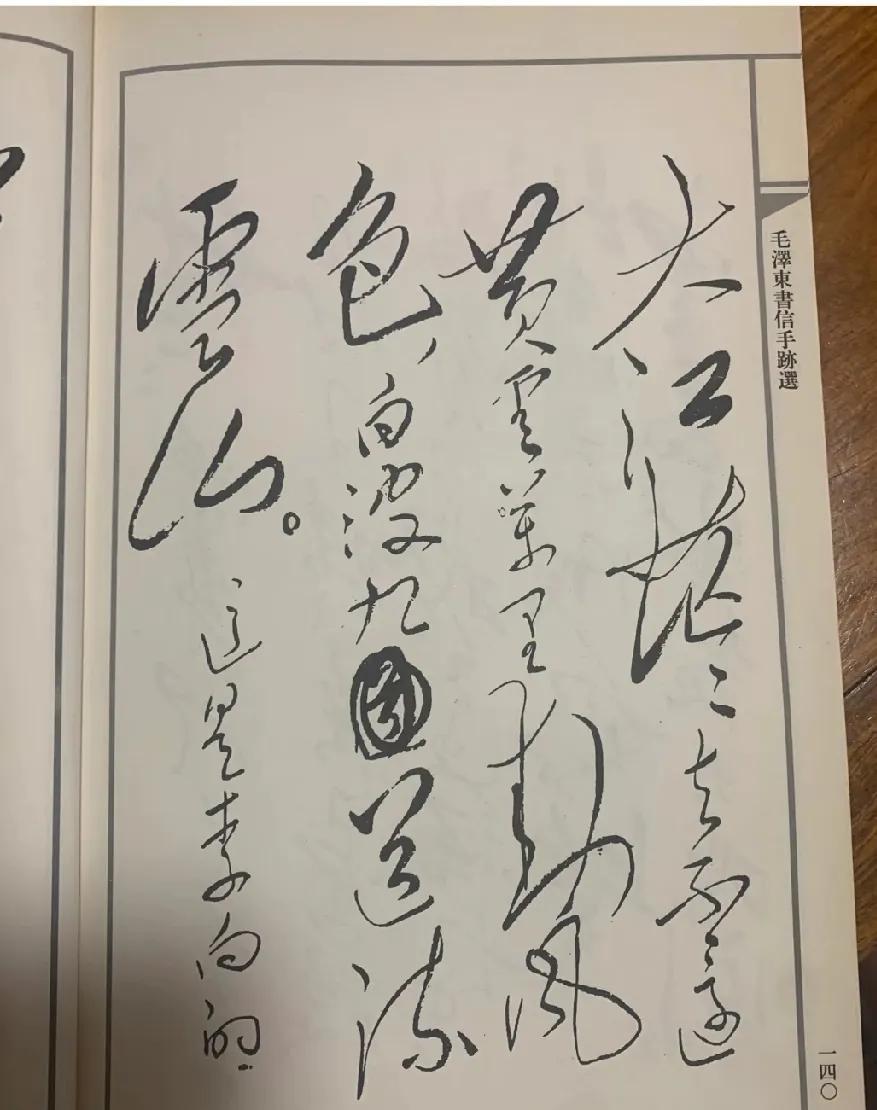 毛澤東書信手跡選
大江茫々去不還
黄雲萬里動風
色，白波九道流
雪山。這是李白的
一四〇